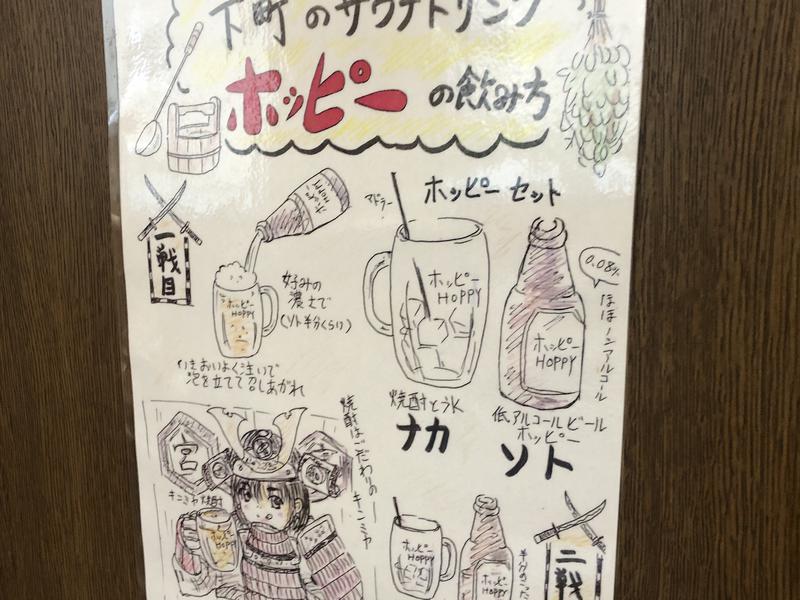 下町のサウナドリンク
ホッピーの飲み方
ホッピーセット
マドラー
一戦目
ホッピー
HOPPY
好みの
濃さで
(ソト半分くらい)
ホッピー
HOPPY
いきおいよく注いで
泡を立てて召しあがれ
ホッピー
HOPPY
焼酎と氷
ナカ
0.08%
ほぼノンアルコール
ホッピー
HOPPY
低アルコールビール
ホッピー
ソト
宮
キンミヤ焼酎
焼酎はこだわりの
キンミヤ
ホッピー
HOPPY
ホッピー
HOPPY
二戦